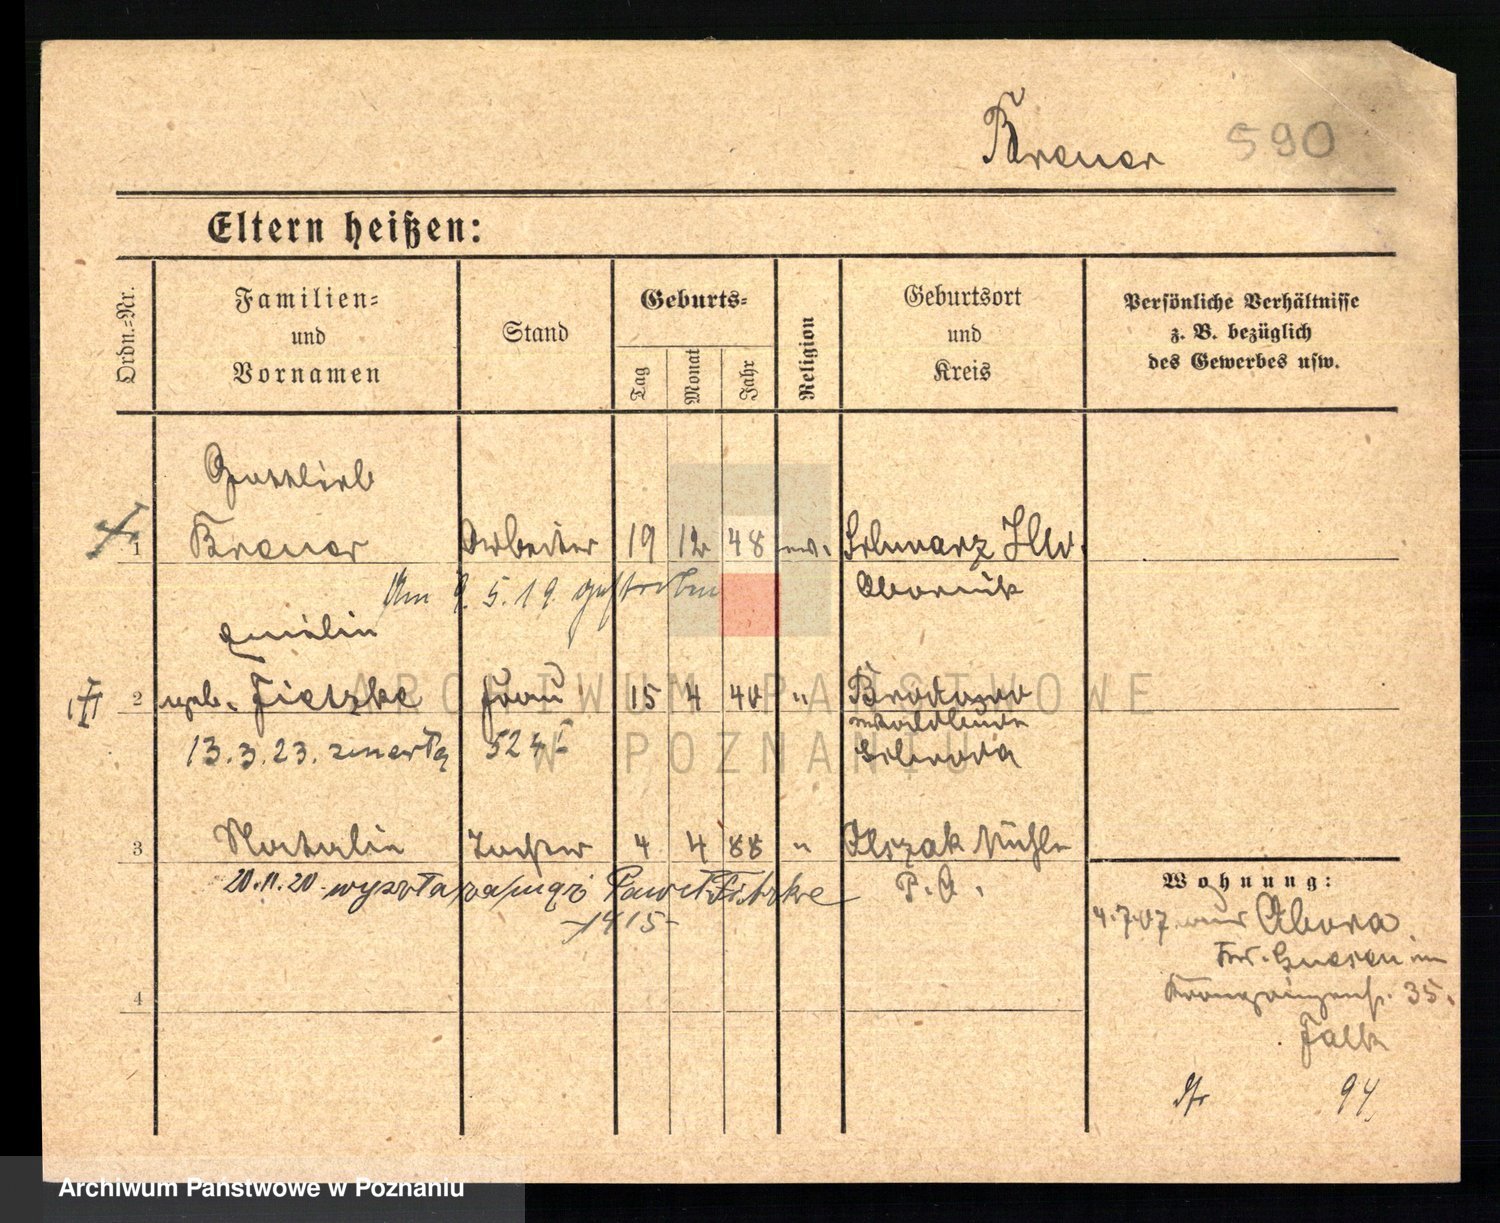 Brener 590
Eltern heißen:
Ordn.=Nr.
Familien=
und
Vornamen
Stand
Geburts=
Tag
Monat
Jahr
Religion
Geburtsort
und
Kreis
Persönliche Verhältnisse
z. B. bezüglich
des Gewerbes usw.
Gottlieb
1 Brener Arbeiter 19 12 48 ev. Schwarz
Am 9.5.19. gestorben Obornik
Emilie
2 geb. Fietzke Frau 15 4 40 "
13.3.23. zmarła 524
3 Natalie Tochter 4 4 88 " Mühle
20.11.20 wyszła za mąż Paweł Fitzke P. O.
1415
4
Wohnung:
4.7.07
35.
Falk
94
ARCHIWUM PAŃSTWOWE
W POZNANIU
Archiwum Państwowe w Poznaniu